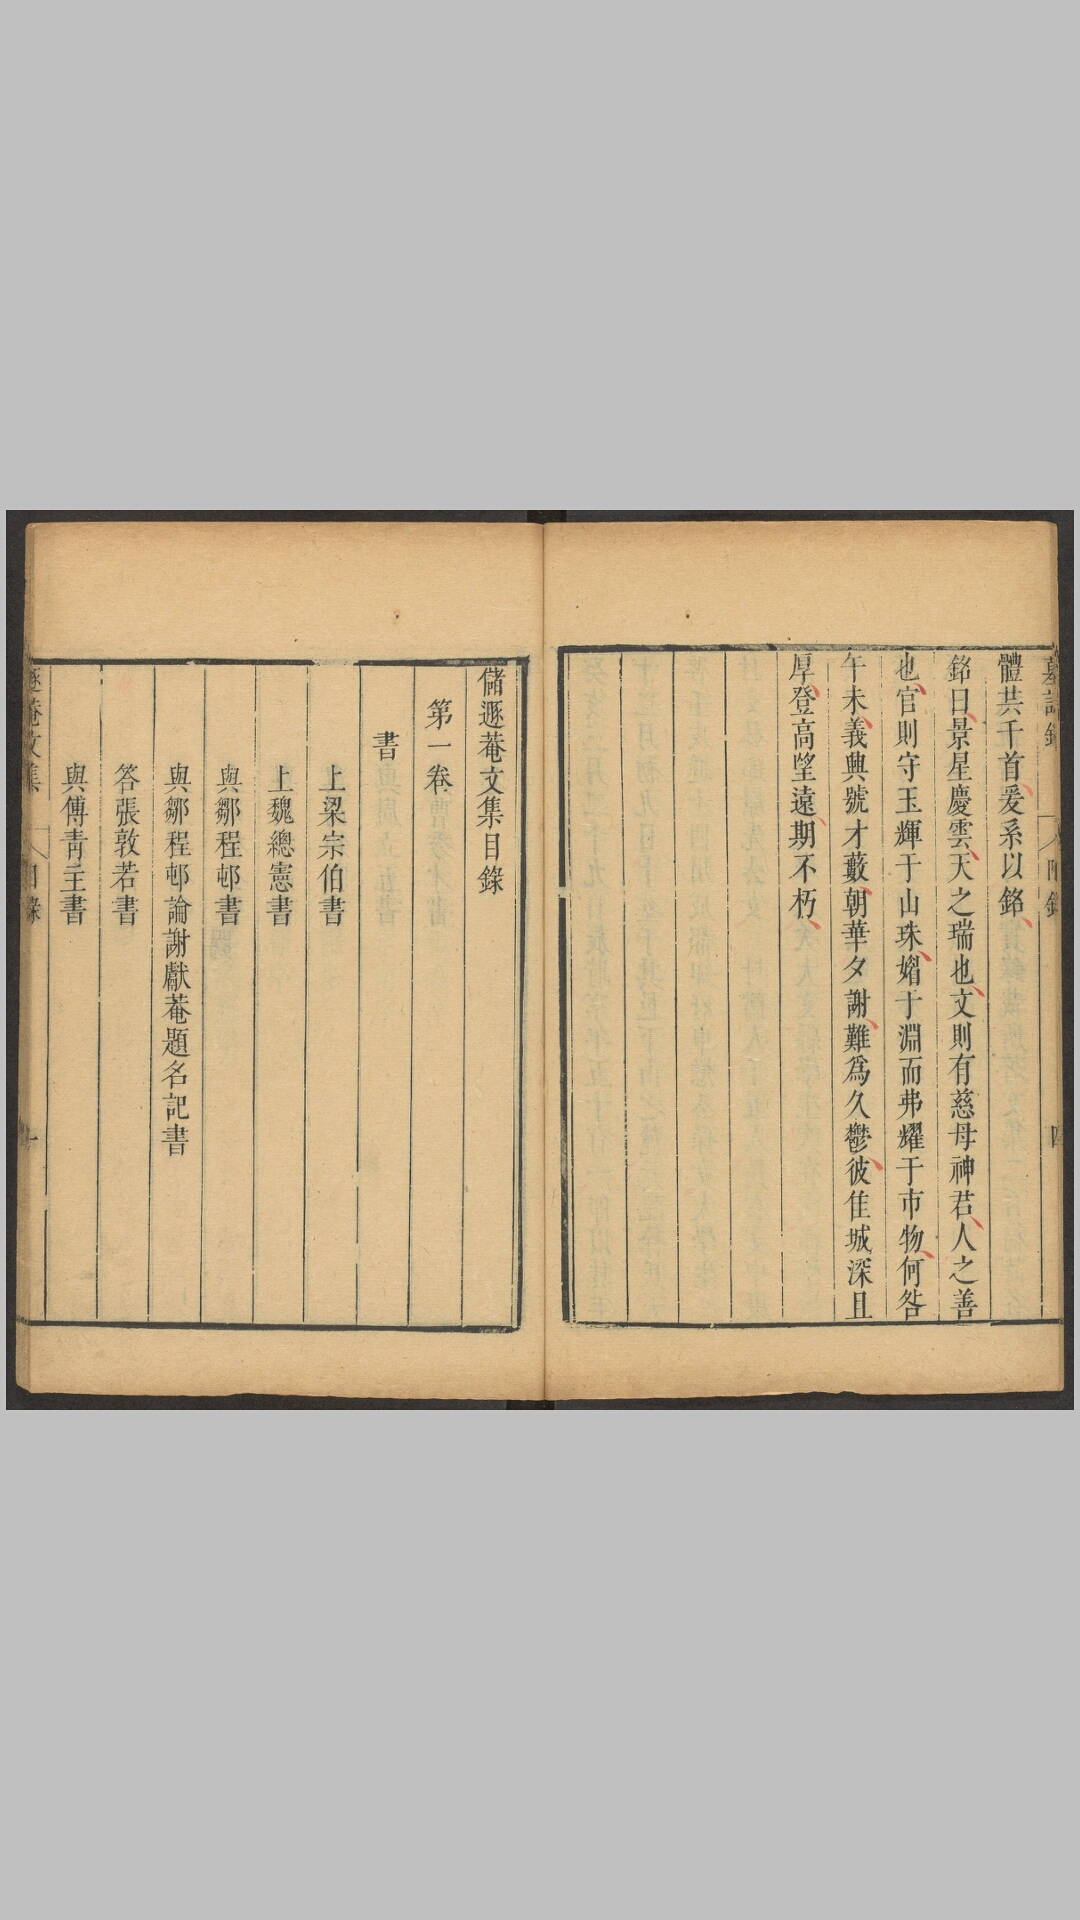 墓誌銘 附錄 四
體共千首爰系以銘
銘曰景星慶雲天之瑞也文則有慈母神君人之善
也官則守玉輝于山珠媚于淵而弗耀于市物何咎
午未義興號才藪朝華夕謝難爲久鬱彼佳城深且
厚登高望遠期不朽
儲遯菴文集目錄
第一卷
書
上梁宗伯書
上魏總憲書
與鄒程邨書
與鄒程邨論謝獻菴題名記書
答張敦若書
與傅青主書
遯菴文集 目錄